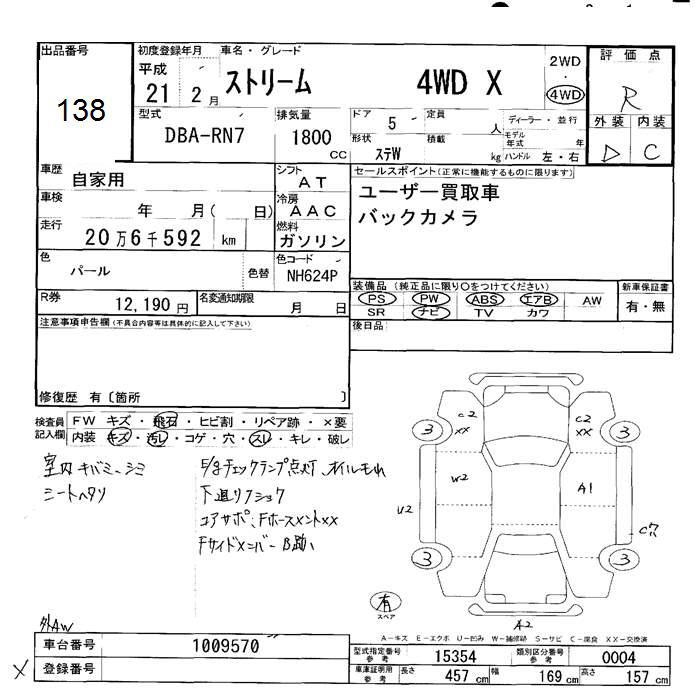 出品番号
138
初度登録年月
平成
21 2 月
車名・グレード
ストリーム 4WD X
2WD
・
4WD
評価点
R
外装 内装
D C
型式
DBA-RN7
排気量
1800
CC
ドア
5
定員
人
形状
ステW
積載
kg
ディーラー・並行
モデル
年式
年
ハンドル 左・右
車歴
自家用
シフト
AT
車検
年 月( 日)
冷房
AAC
走行
20万6千592 km
燃料
ガソリン
色
パール
色替
色コード
NH624P
R券
12,190 円
名変通知期限
月 日
セールスポイント(正常に機能するものに限ります)
ユーザー買取車
バックカメラ
装備品(純正品に限り○をつけてください)
PS PW ABS エアB AW
SR ナビ TV カワ
新車保証書
有・無
後日品
注意事項申告欄(不具合内容等は具体的に記入して下さい)
修復歴 有〔箇所 〕
検査員
記入欄
FW キズ・飛石・ヒビ割・リペア跡・×要
内装・キズ・汚レ・コゲ・穴・スレ・キレ・破レ
室内キバミ、シミ
シートヘタリ
E/gチェックランプ点灯、オイルモレ
下廻りフショク
コアサポ、Fホースメントxx
FサイドメンバーB跡
C2
XX
C2
XX
3
3
W2
A1
U2
3
3
有
スペア
A2
A−キズ E−エクボ U−凹み W−補修跡 S−サビ C−腐食 XX−交換済
外AW
車台番号
1009570
登録番号
X
型式指定番号
参考
15354
類別区分番号
参考
0004
車庫証明用
参考
長さ
457 cm
幅
169 cm
高さ
157 cm